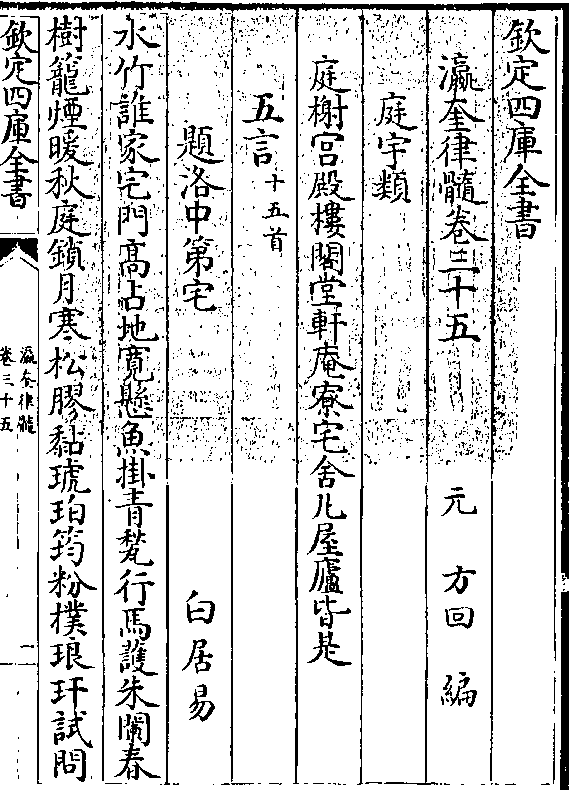 欽定四庫全書
瀛奎律髓卷三十五　元　方回　編
庭宇類
庭榭宫殿樓閣堂軒庵寮宅舍凡屋廬皆是
五言十五首
題洛中第宅　白居易
水竹誰家宅門髙占地寛懸魚掛青甃行馬護朱闌春
樹籠煙暖秋庭鎖月寒松膠黏琥珀筠粉撲琅玕試問
欽定四庫全書
瀛奎律髓
卷三十五
一